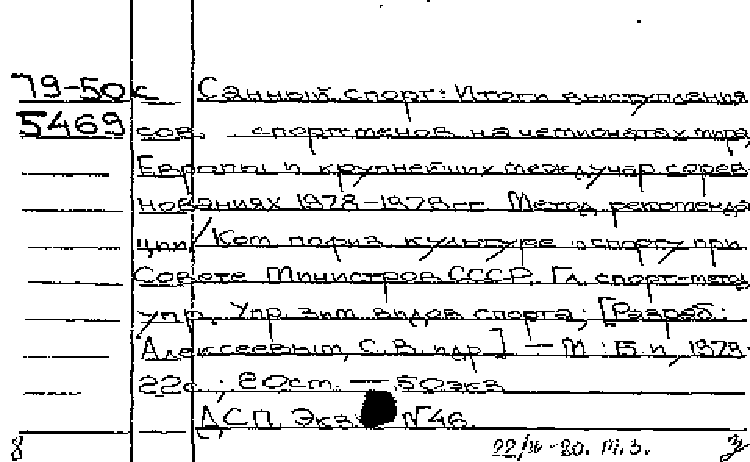 79-50с Санный спорт: Итоги выступления
5469 сов. спортсменов на чемпионатах мира,
Европы и крупнейших междунар. сорев-
нованиях 1978-1978 гг. Метод. рекоменда
ции/Ком. по физ. культуре и спорту при
Совете Министров СССР. Гл. спорт.-метод.
упр., Упр. зим. видов спорта; [Разраб.:
Алексеевым, С.В. и др.] — М.: Б. и., 1978-
22с.; 20 см. — 50 экз
ДСП. Экз. №46.
8 22/ -80.